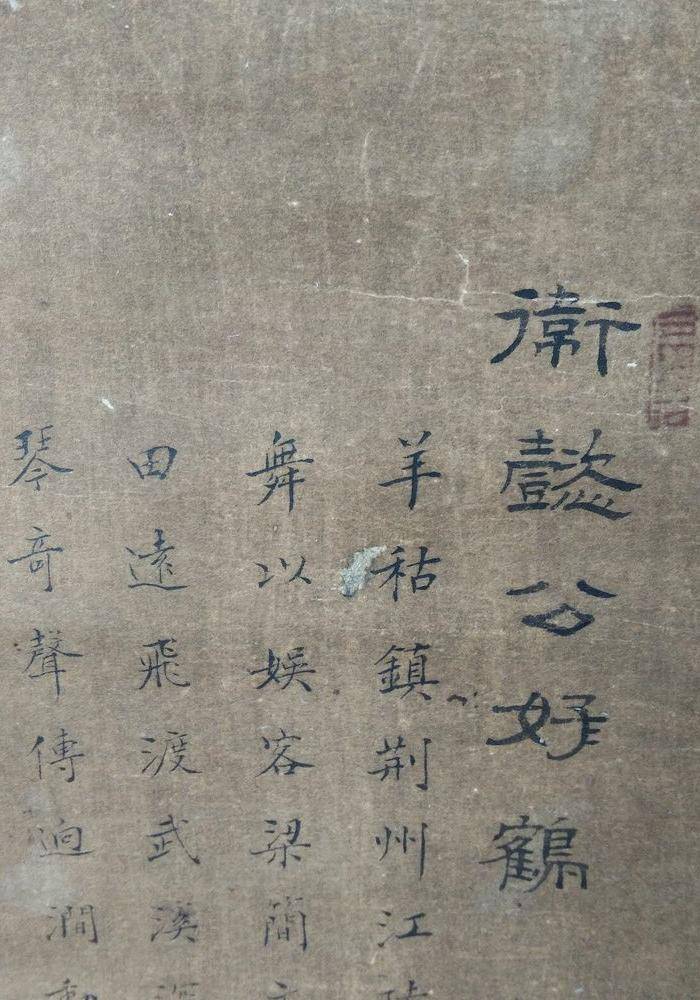 衞懿公好鶴
羊祜鎮荆州江
舞以娱客梁簡
田遠飛渡武溪
琴奇聲傳迥澗